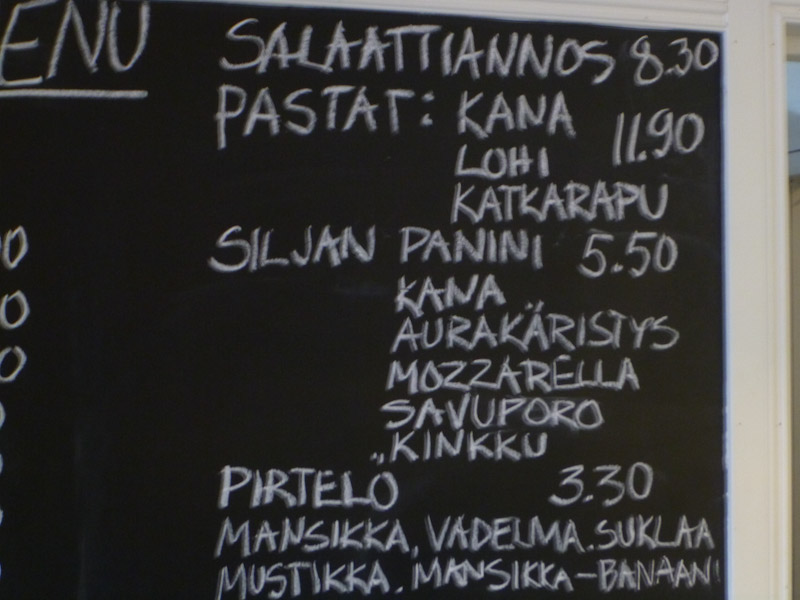 ENU
SALAATTIANNOS 8.30
PASTAT: KANA 11.90
LOHI
KATKARAPU
0
SILJAN PANINI 5.50
KANA
0
AURAKÄRISTYS
0
MOZZARELLA
SAVUPORO
KINKKU
PIRTELO 3.30
MANSIKKA, VADELMA. SUKLAA
MUSTIKKA. MANSIKKA-BANAANI